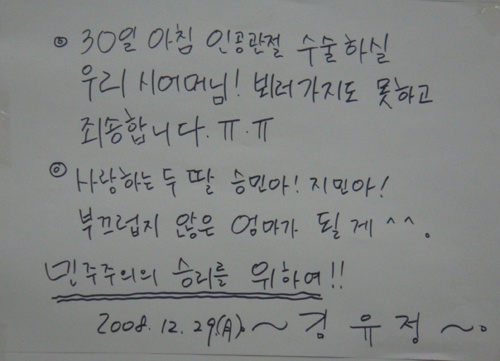 ◎ 30일 아침 인공관절 수술하실
우리 시어머님! 뵈러가지도 못하고
죄송합니다. ㅠ.ㅠ
◎ 사랑하는 두 딸 승민아! 지민아!
부끄럽지 않은 엄마가 될게^^.
민주주의의 승리를 위하여!!
2008. 12. 29(月). ~ 김 유 정 ~.